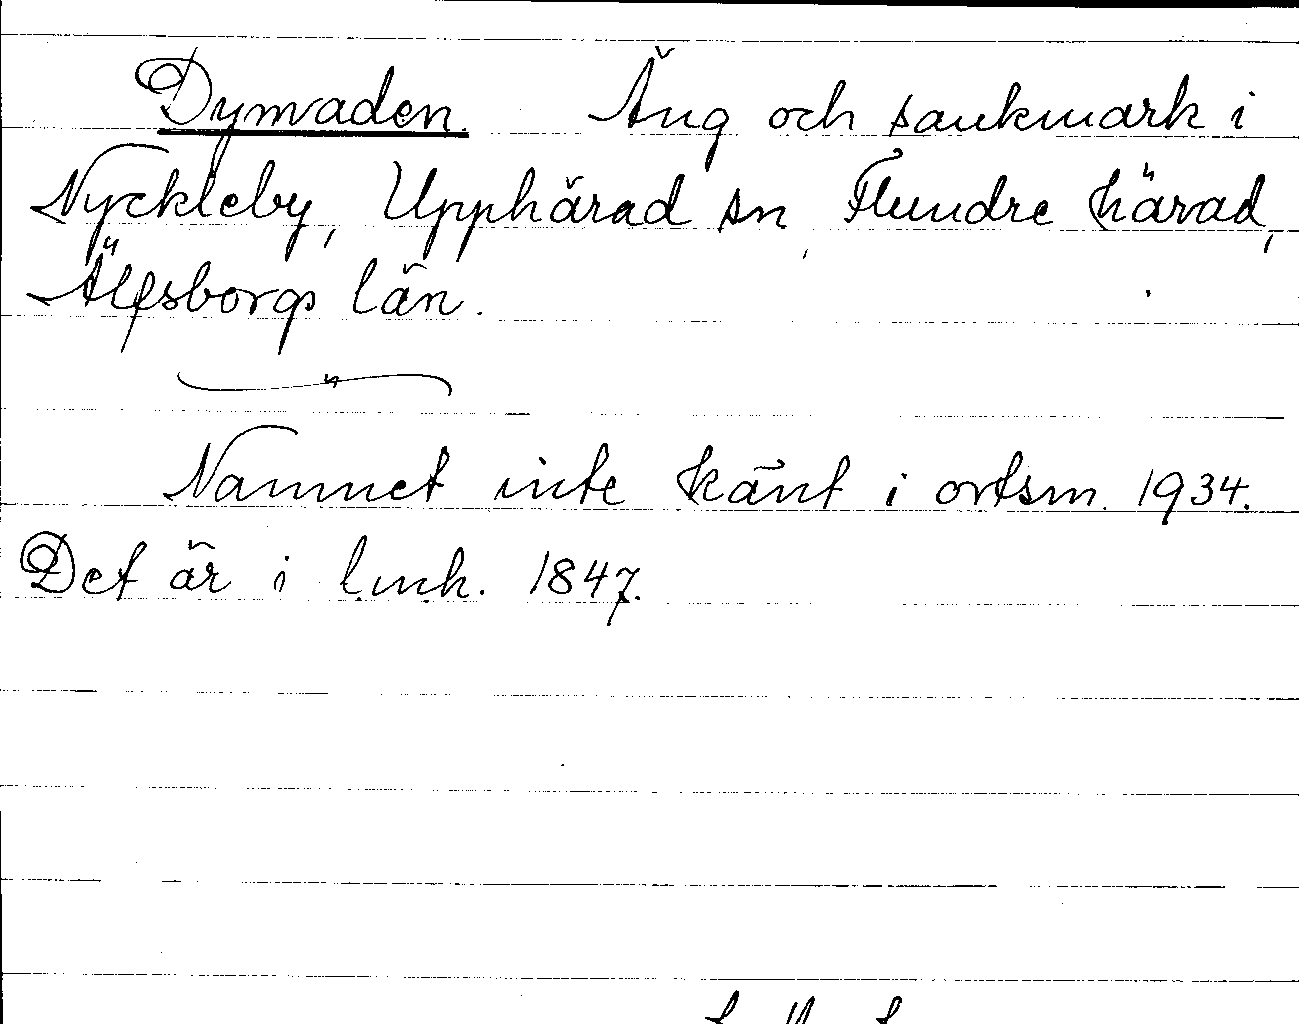 Dymaden. Äng och sankmark i
Nyckleby, Upphärad sn, Flundre härad,
Älfsborgs län.
Namnet inte känt i ortsm. 1934.
Det är i lmh. 1847.